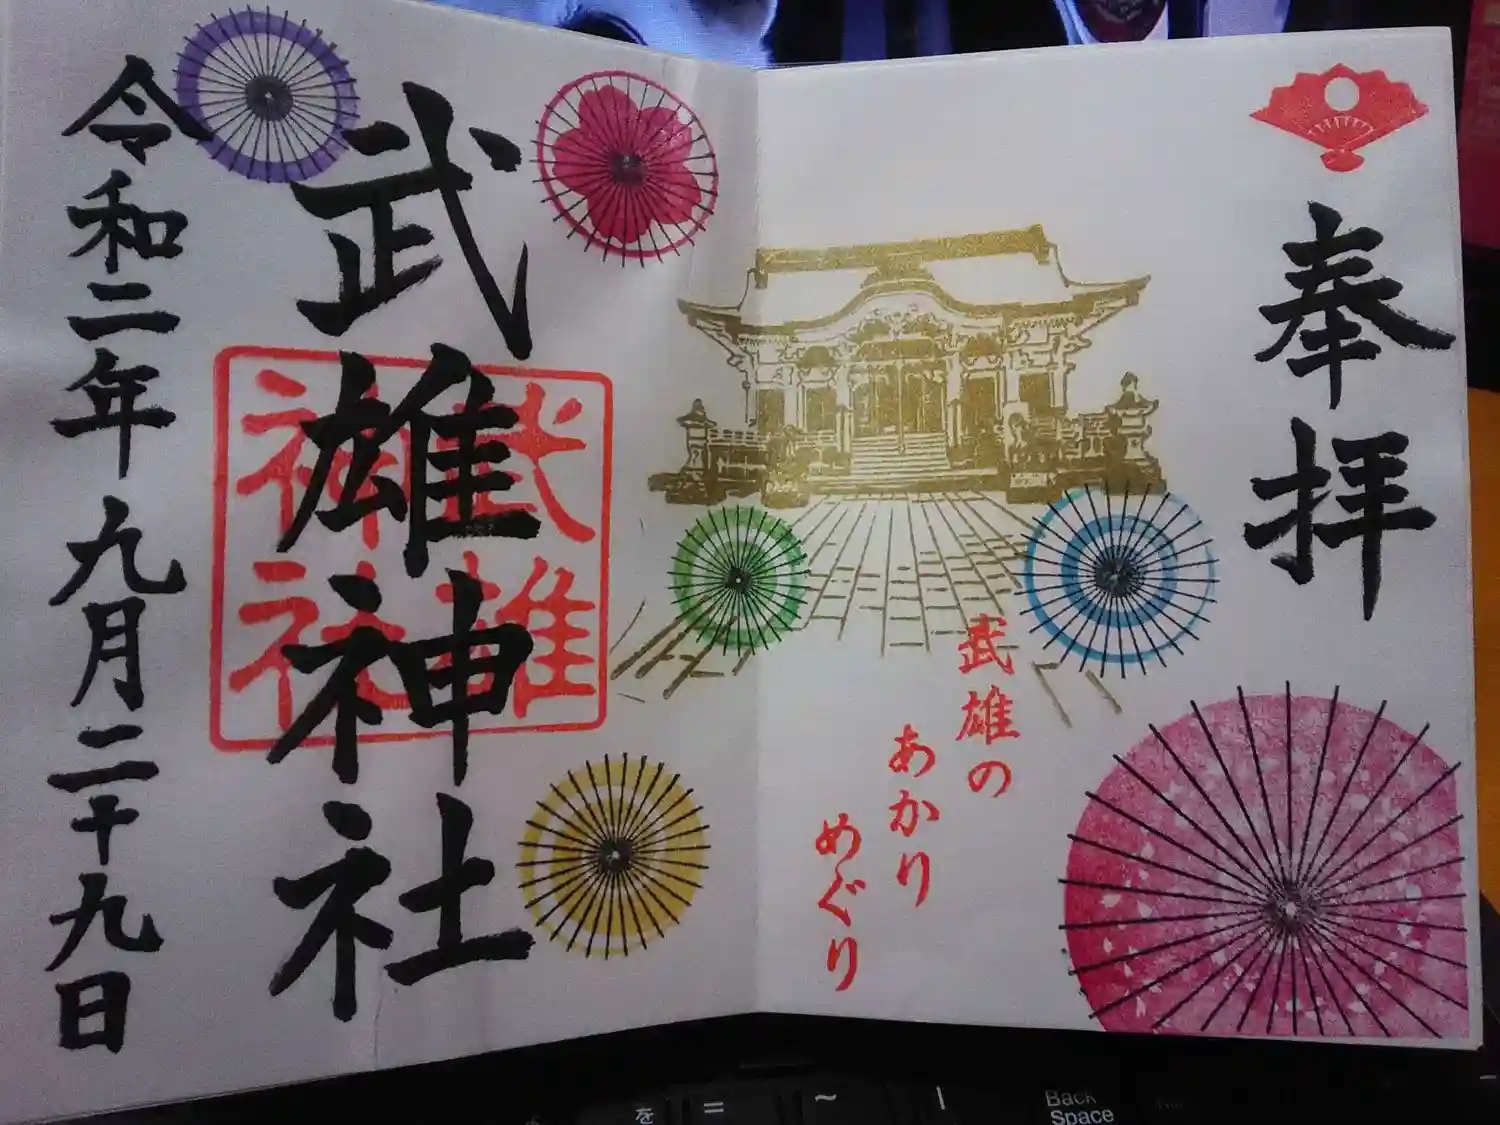 奉拝
武雄の
あかり
めぐり
武雄神社
武雄
神社
令和二年九月二十九日
を
=
~
Back
Space